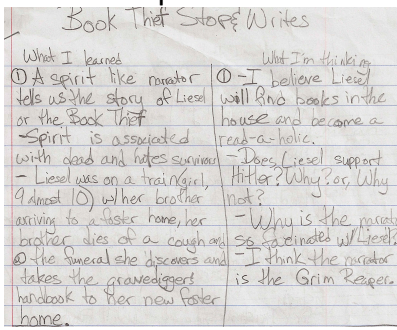 Book Thief Stop & Writes
What I learned
① A spirit like narrator
tells us the story of Liesel
or the Book Thief
-Spirit is associated
with dead and hates survivors
- Liesel was on a train (girl,
9 almost 10) w/her brother
arriving to a foster home, her
brother dies of a cough and
@ the funeral she discovers and
takes the gravediggers
handbook to her new foster
home.
What I'm thinking
① - I believe Liesel
will find books in the
house and become a
read-a-holic.
- Does Liesel support
Hitler? Why? or, Why
not?
- Why is the narrator
so facinated w/ Liesel?
- I think the narrator
is the Grim Reaper.